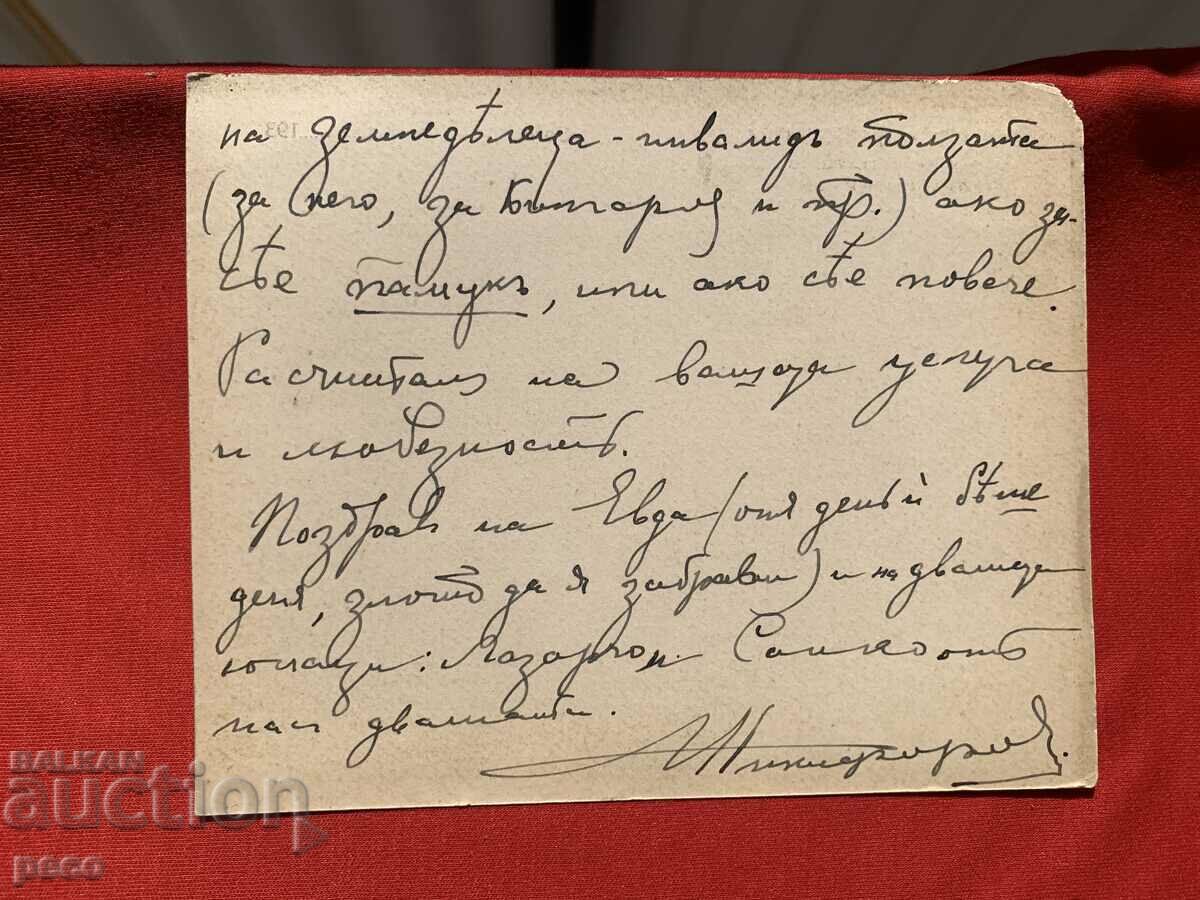 на земледѣлеца - инвалидъ ползата
(за него, за България и пр.) ако за-
сѣе памукъ, или ако сѣе повече.
Расчитамъ на вашата услуга
и любезность.
Поздрав на Евда (оня день ѝ бѣше
деня, злото да я забрави) и на двамата
юнаци: Лазарчо и Санко отъ
нас двамата.
Никифоровъ.
BALKAN
auction
peco